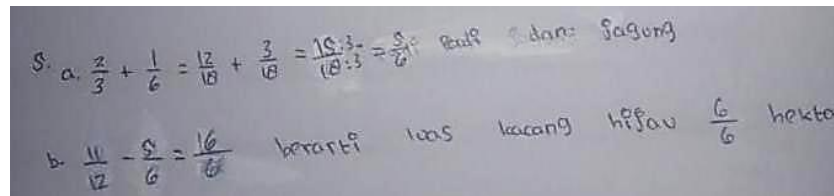 5. a. 2/3 + 1/6 = 12/18 + 3/18 = 15:3/18:3 = 5/6 padi dan jagung
b. 11/12 - 5/6 = 16/6 berarti luas kacang hijau 6/6 hekta